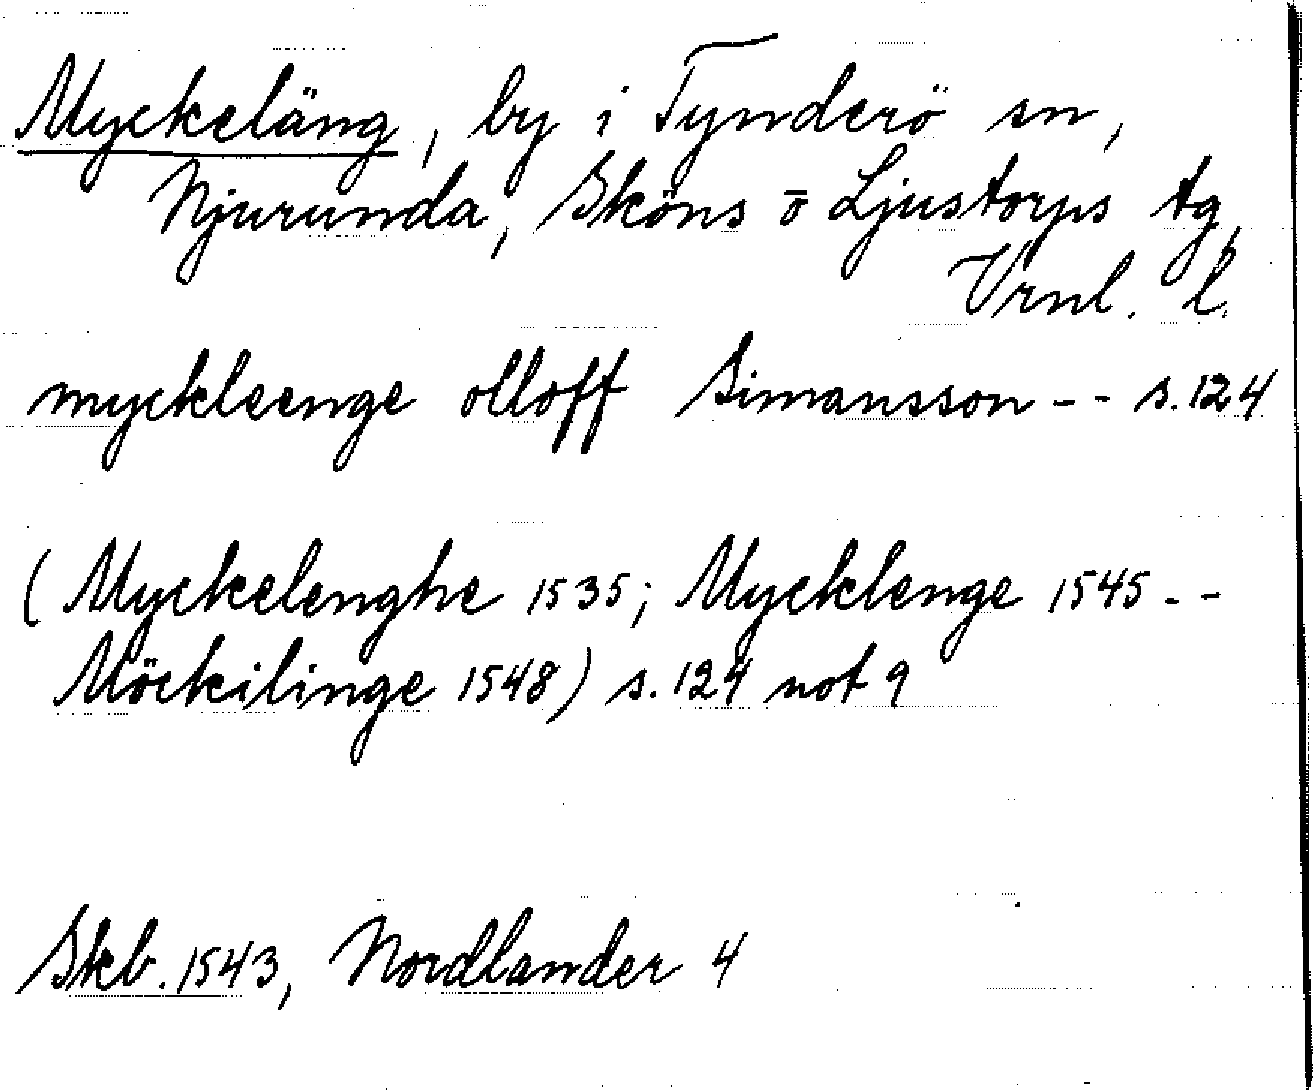 Myckeläng, by i Tynderö sn,
Njurunda, Sköns o Ljustorps tg,
Vrnl. l.
myckleenge olloff Simansson -- s. 124
(Myckelenghe 1535; Mycklenge 1545 --
Möckilinge 1548) s. 124 not 9
Skb. 1543, Nordlander 4